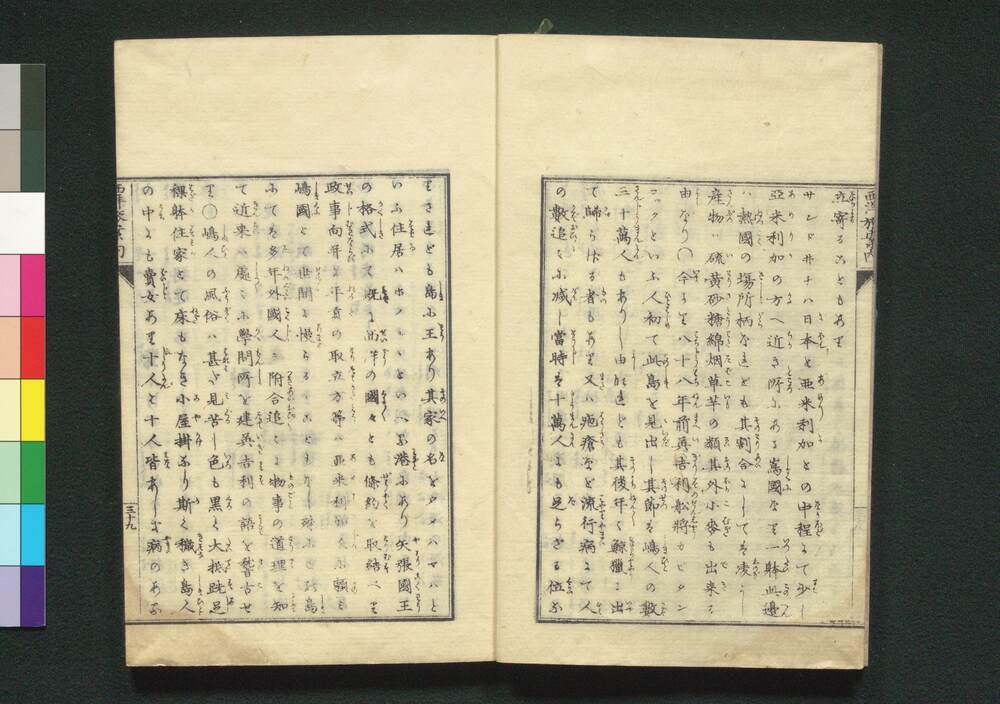 立寄ることもあり
サンドウ井チハ日本と亜米利加との中程にて少し
亞米利加の方へ近き所にある嶌國なり一躰此邊
ハ熱國の場所柄なれども其割合にしてハ凌よし
産物ハ硫黄砂糖綿烟草等の類其外小麦も出来る
由なり〇今より八十八年前英吉利舩將カピタン
コックといふ人初て此島を見出し其節を嶋人の数
三十萬人もありし由なれども其後年々鯨獵に出
て歸らざる者もあり又ハ疱瘡など流行病にて人
の數追々に减し當時ハ十萬人にも足らざる位な
りされども島に王あり其家の名をタメハマハと
いふ住居ハホノルヽといへる港にあり矢張國王
の格式にて既に西洋の國々とも條約を取結へり
政事向并に年貢の取立方等ハ亜米利加人に頼み
嶋國とて世間に慢らるゝこともなし殊に此島
にてハ多年外國人に附合追々に物事の道理を知
て近来ハ處々に學問所を建英吉利の語を稽古せ
り〇嶋人の風俗ハ甚さ見苦し色も黒く大抵跣足
裸躰住家とて床もなき小屋掛なり斯く穢き島人
の中にも賣女あり十人ハ十人皆あしき病のあ
三十九